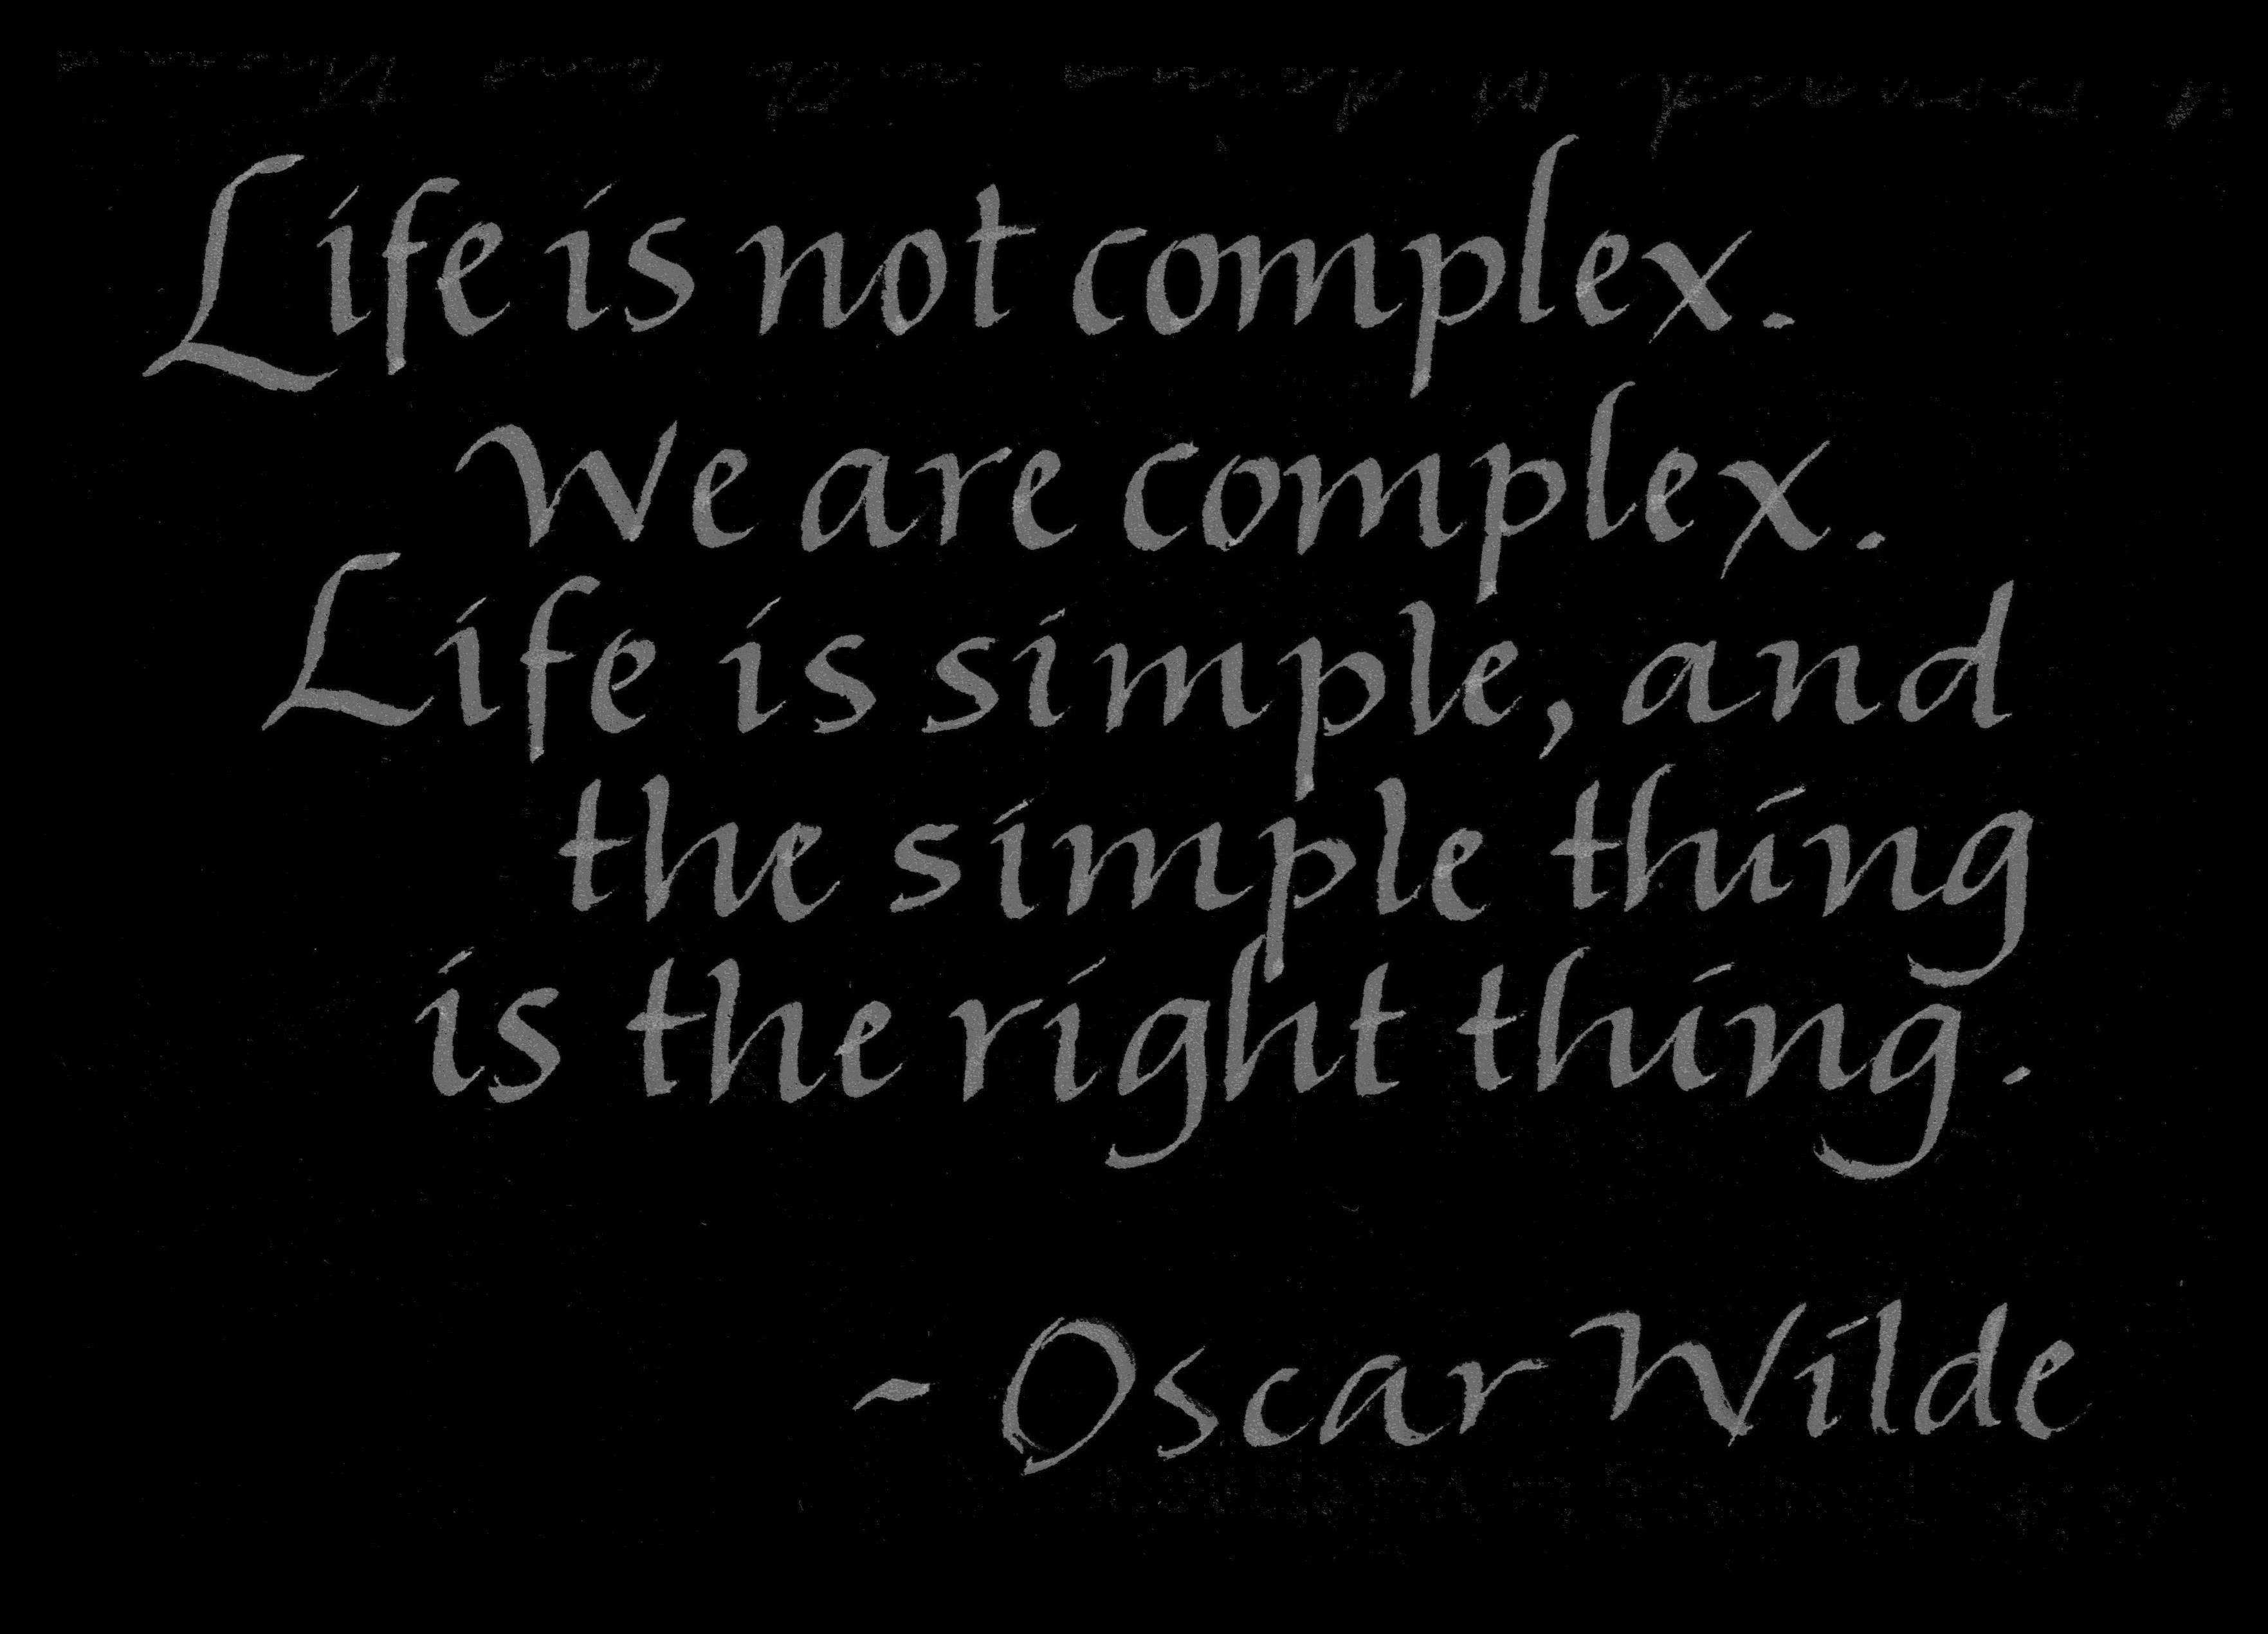 Life is not complex.
We are complex.
Life is simple, and
the simple thing
is the right thing.
- Oscar Wilde